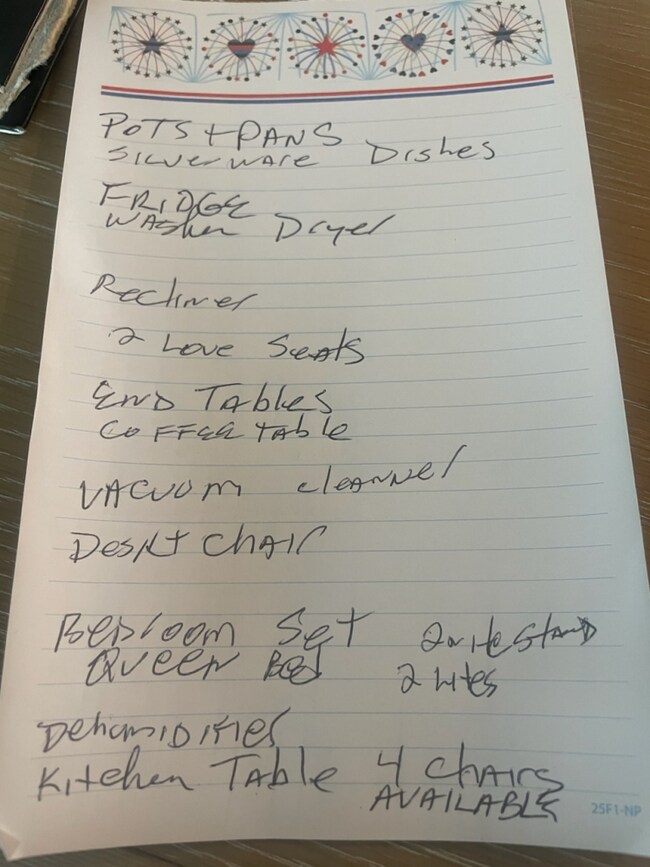 POTS + PANS
SILVERWARE Dishes
FRIDGE
WASher Dryer
Recliner
2 Love Seats
END TAbles
COFFEE TABle
VACUUM cleANNer
Desk + CHAIr
BeDroom Set 2 nite StanD
Queen Bed 2 Lites
DehumIDIfier
KitcHen TAble 4 CHAIrs
AVAILABLE
25F1-NP